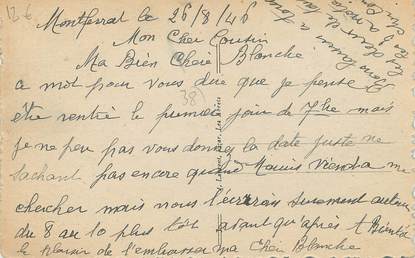 12 €
Montferrat le 26/8/46
Mon Cher Cousin
Ma Bien Cheir Blanche
a mot pour vous dire que je pense
(38)
être rentré le premier jour de 7bre mais
je ne peu pas vous donner la date juste ne
sachant pas encore quand Mauis viendra me
chercher mais vous l'écrirai surement autour
du 8 au 10 plus tôt avant qu'après A Bientôt
le plaisir de t'embrasser ma Cheir Blanche